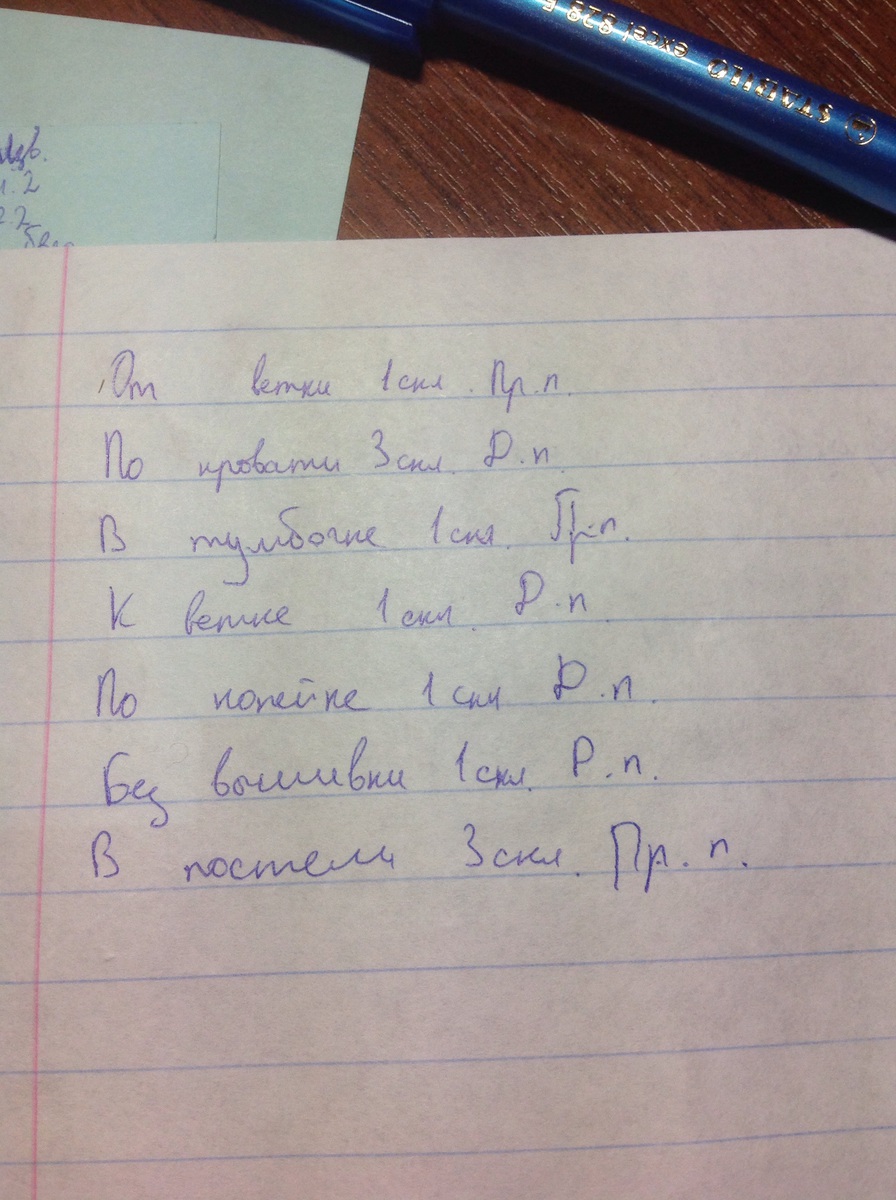 STABILO excel 828 F
Изв.
2
2.2
От ветки 1 скл. Пр.п.
По кровати 3 скл. Д.п.
В тумбочке 1 скл. Пр.п.
К ветке 1 скл. Д.п
По копейке 1 скл Д.п.
Без вышивки 1 скл. Р.п.
В постели 3 скл. Пр.п.